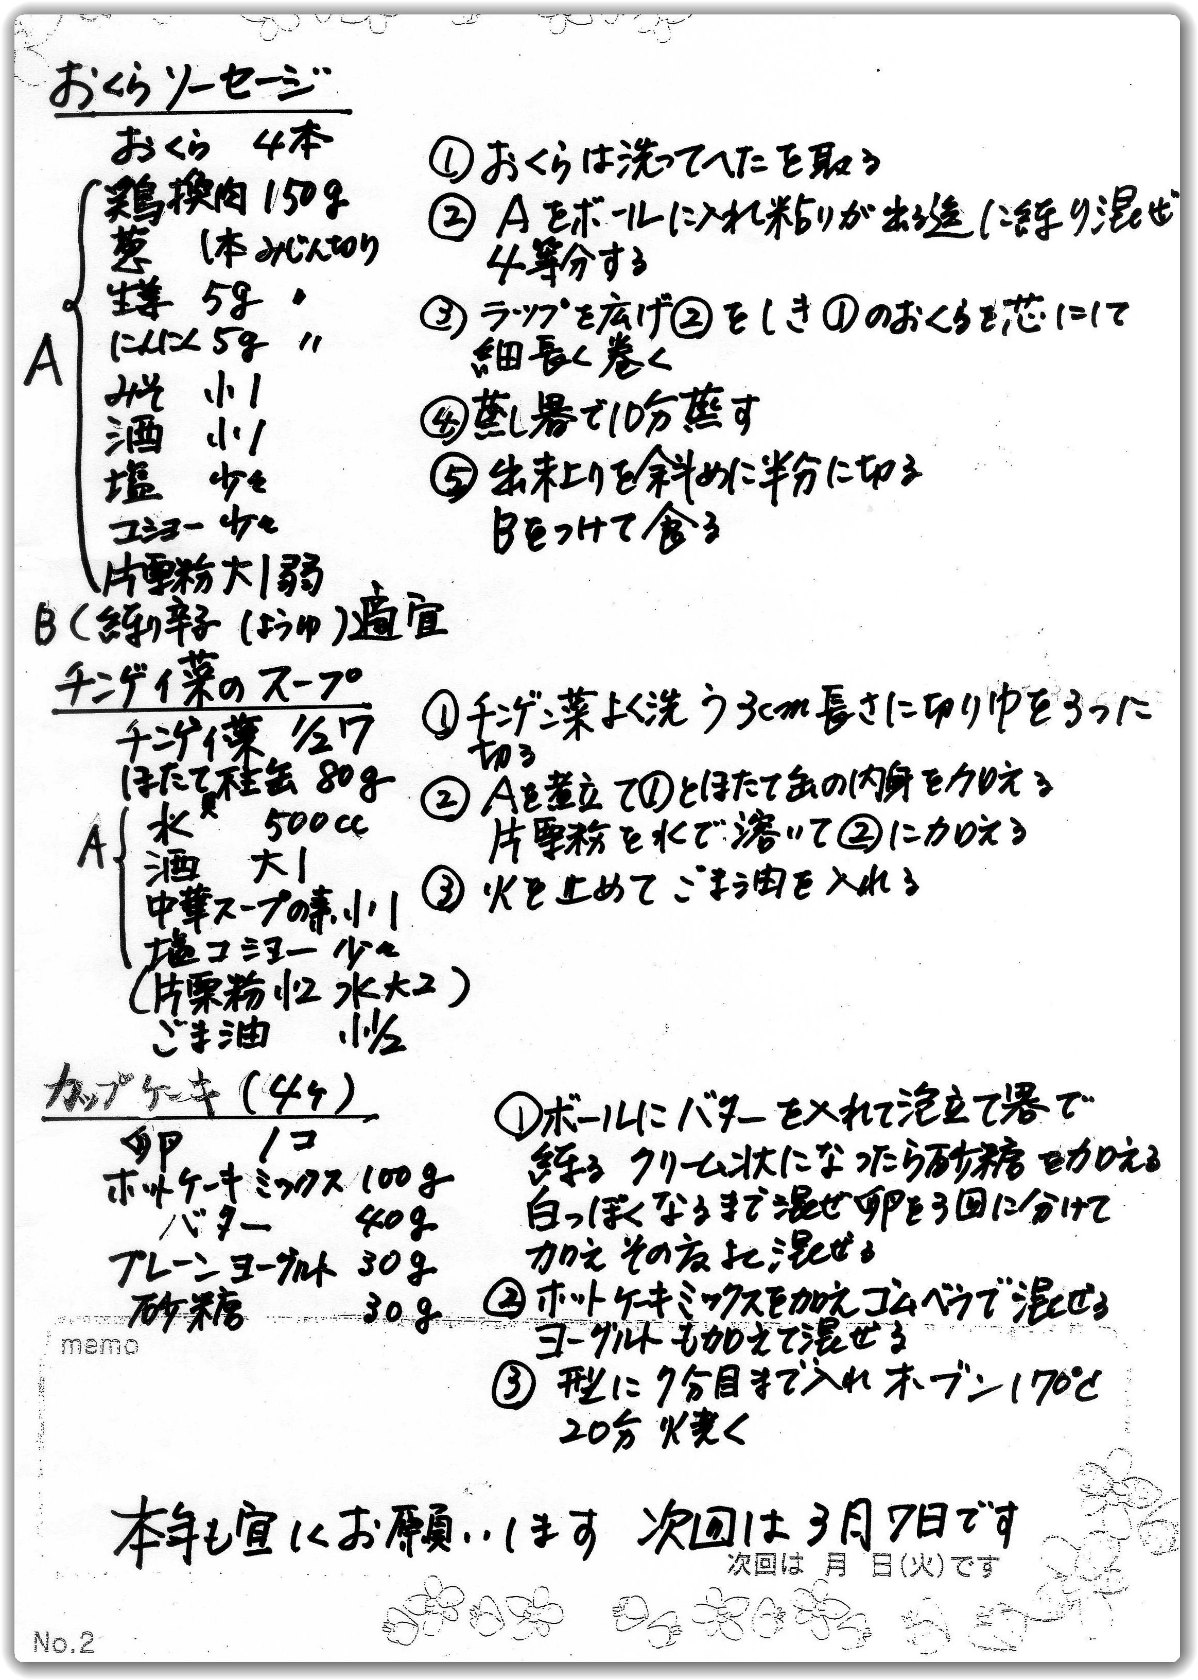 おくらソーセージ
おくら 4本
A
鶏挽肉 150g
葱 1本 みじん切り
生姜 5g 〃
にんにく 5g 〃
みそ 小1
酒 小1
塩 少々
コショー 少々
片栗粉 大1弱
B (練り辛子 しょうゆ)適宜
① おくらは洗ってへたを取る
② Aをボールに入れ粘りが出る迄に練り混ぜ
4等分する
③ ラップを広げ②をしき①のおくらを芯にして
細長く巻く
④ 蒸し器で10分蒸す
⑤ 出来上りを斜めに半分に切る
Bをつけて食る
チンゲイ菜のスープ
チンゲイ菜 1/2ワ
ほたて貝柱缶 80g
A
水 500cc
酒 大1
中華スープの素 小1
塩コショー 少々
(片栗粉 小2 水大2)
ごま油 小1/2
① チンゲン菜よく洗う 3cm長さに切り巾を3つに
切る
② Aを煮立て①とほたて缶の内身を加える
片栗粉を水で溶いて②に加える
③ 火を止めてごま油を入れる
カップケーキ (4ヶ)
卵 1コ
ホットケーキミックス 100g
バター 40g
プレーンヨーグルト 30g
砂糖 30g
① ボールにバターを入れて泡立て器で
練る クリーム状になったら砂糖を加える
白っぽくなるまで混ぜ卵を3回に分けて
加え その度よく混ぜる
② ホットケーキミックスを加えゴムベラで混ぜる
ヨーグルトも加えて混ぜる
③ 型に7分目まで入れオーブン170℃
20分 焼く
memo
本年も宜しくお願いします 次回は3月7日です
次回は 月 日(火)です
No.2